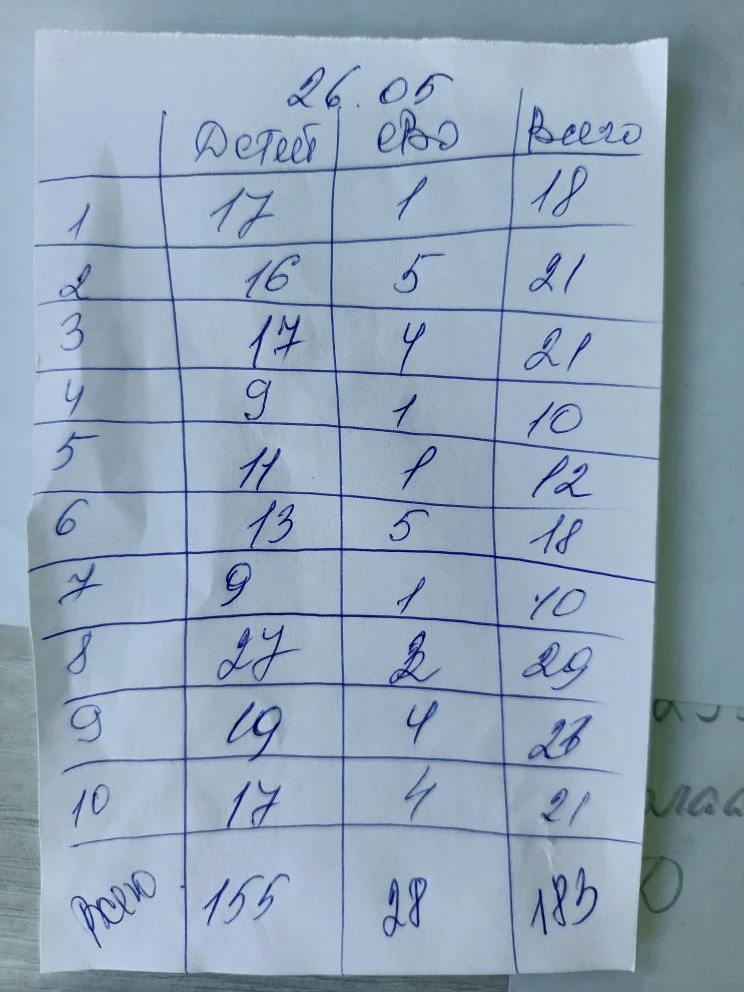 26.05
Детей СВО Всего
1 17 1 18
2 16 5 21
3 17 4 21
4 9 1 10
5 11 1 12
6 13 5 18
7 9 1 10
8 27 2 29
9 19 4 23
10 17 4 21
Всего 155 28 183